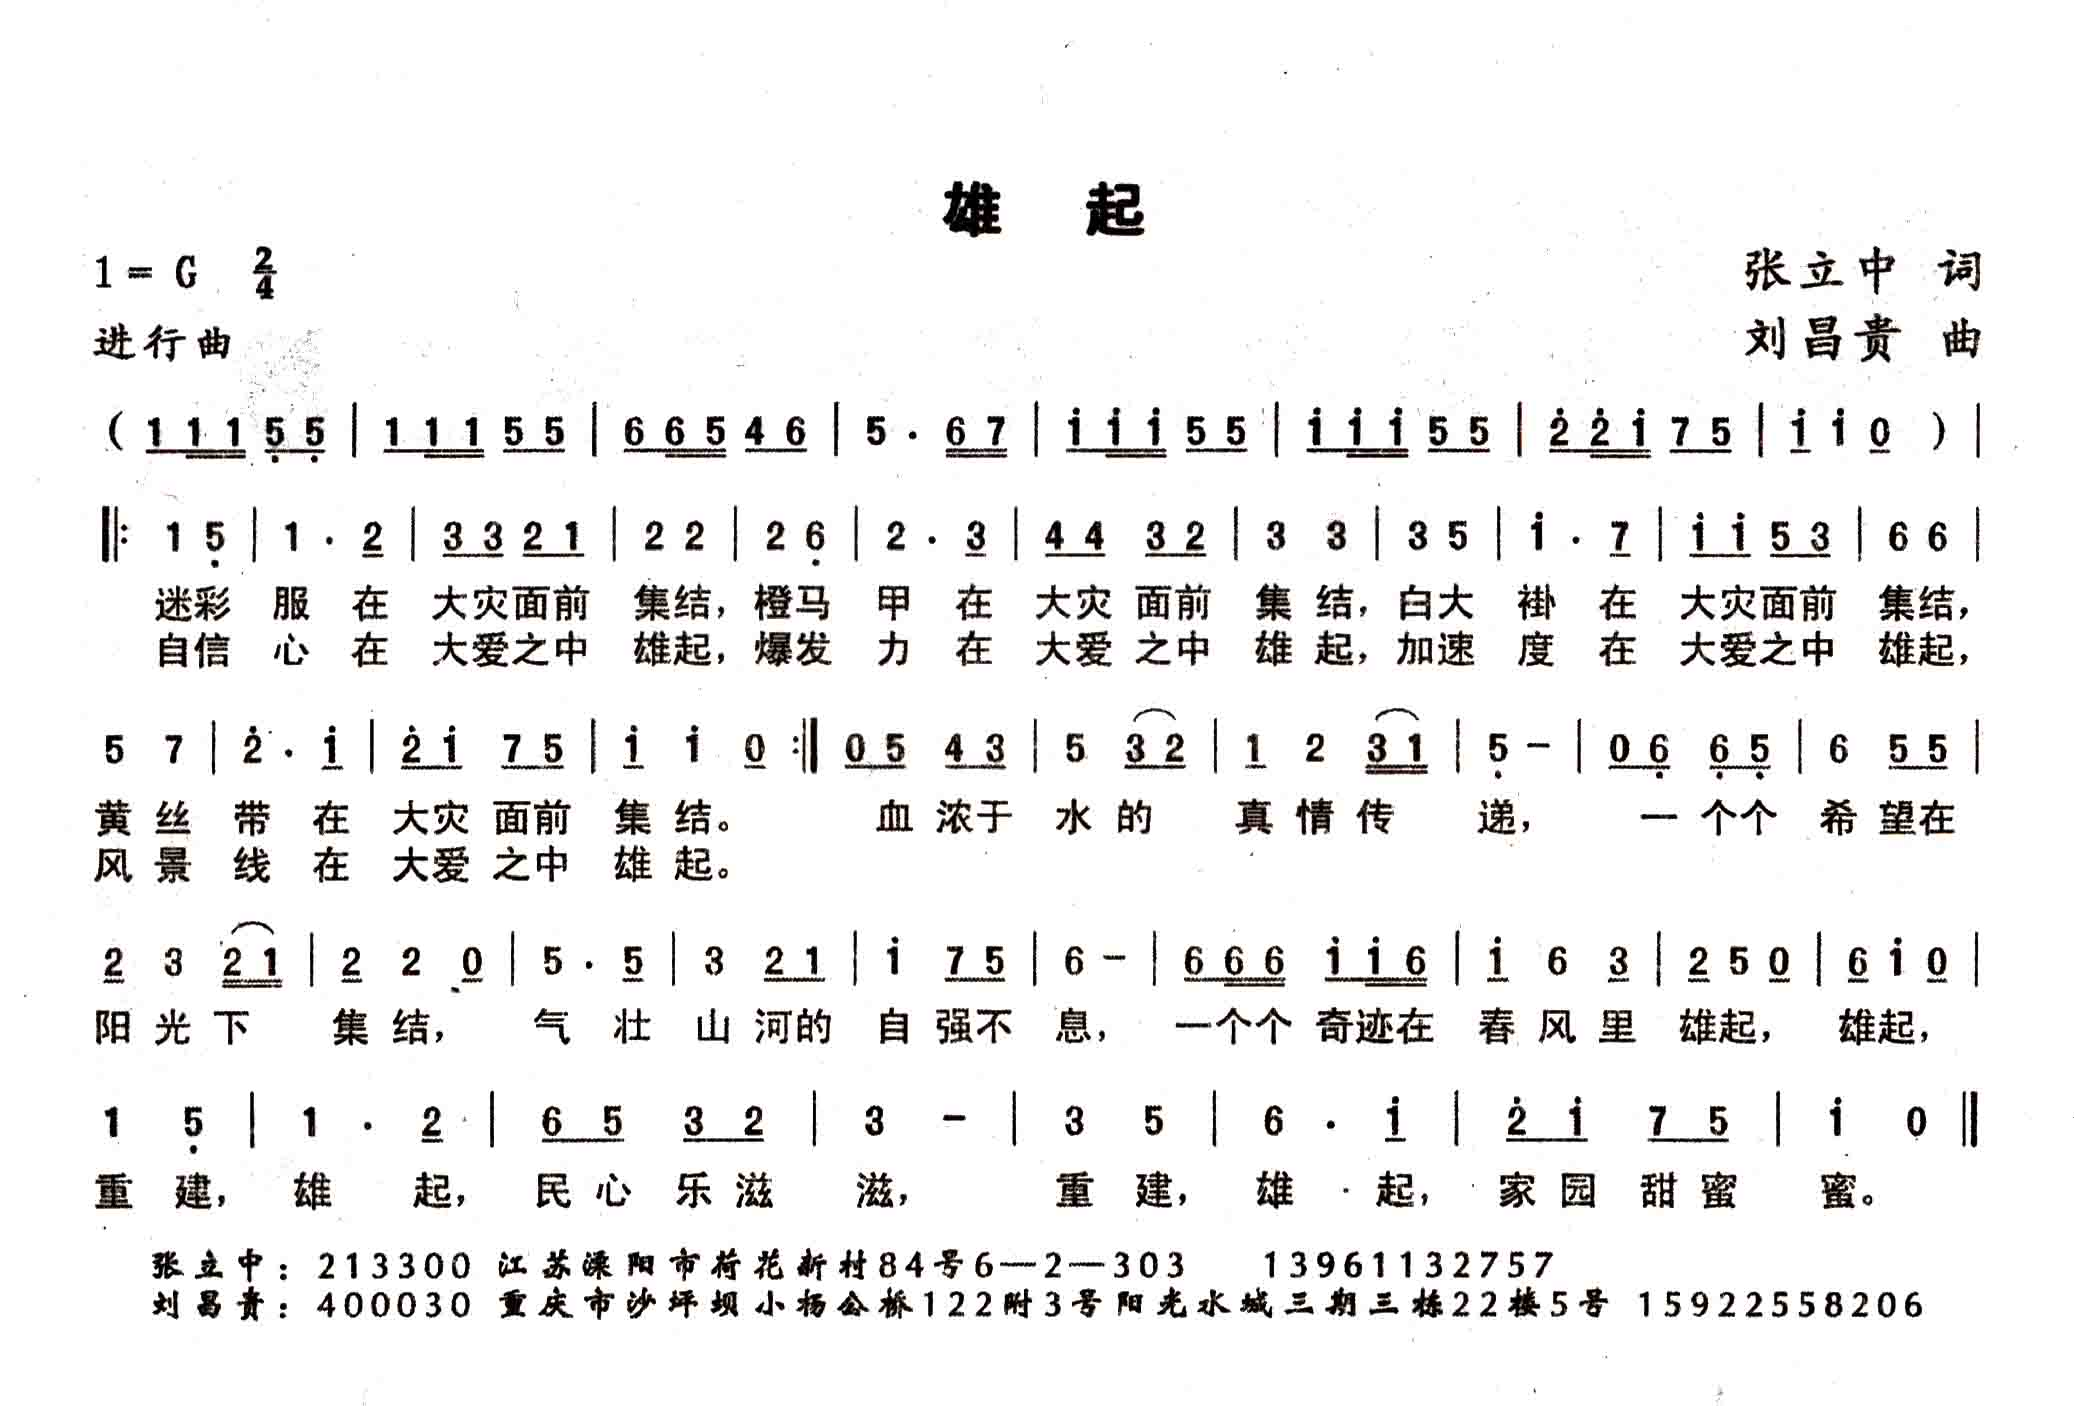 雄 起
1＝G 2/4
张立中 词
进行曲
刘昌贵 曲
( 1 1 1 5 5 | 1 1 1 5 5 | 6 6 5 4 6 | 5 · 6 7 | i i i 5 5 | i i i 5 5 | 2 2 i 7 5 | i i 0 ) |
‖: 1 5 | 1 · 2 | 3 3 2 1 | 2 2 | 2 6 | 2 · 3 | 4 4 3 2 | 3 3 | 3 5 | i · 7 | i i 5 3 | 6 6 |
迷彩 服 在 大灾面前 集结，橙马 甲 在 大灾 面前 集 结，白大 褂 在 大灾面前 集结，
自信 心 在 大爱之中 雄起，爆发 力 在 大爱 之中 雄 起，加速 度 在 大爱之中 雄起，
5 7 | 2 · i | 2 i 7 5 | i i 0 :‖ 0 5 4 3 | 5 3 2 | 1 2 3 1 | 5 － | 0 6 6 5 | 6 5 5 |
黄 丝 带 在 大灾 面前 集 结。 血 浓于 水 的 真 情 传 递， 一 个个 希 望在
风 景 线 在 大爱 之中 雄 起。
2 3 2 1 | 2 2 0 | 5 · 5 | 3 2 1 | i 7 5 | 6 － | 6 6 6 i i 6 | i 6 3 | 2 5 0 | 6 i 0 |
阳 光 下 集 结， 气 壮 山 河的 自 强不 息， 一个个 奇迹在 春 风 里 雄起， 雄起，
1 5 | 1 · 2 | 6 5 3 2 | 3 － | 3 5 | 6 · i | 2 i 7 5 | i 0 ‖
重 建， 雄 起， 民 心 乐 滋 滋， 重 建， 雄 起， 家 园 甜 蜜 蜜。
张立中：213300 江苏溧阳市荷花新村84号6—2—303 13961132757
刘昌贵：400030 重庆市沙坪坝小杨公桥122附3号阳光水城三期三栋22楼5号 15922558206